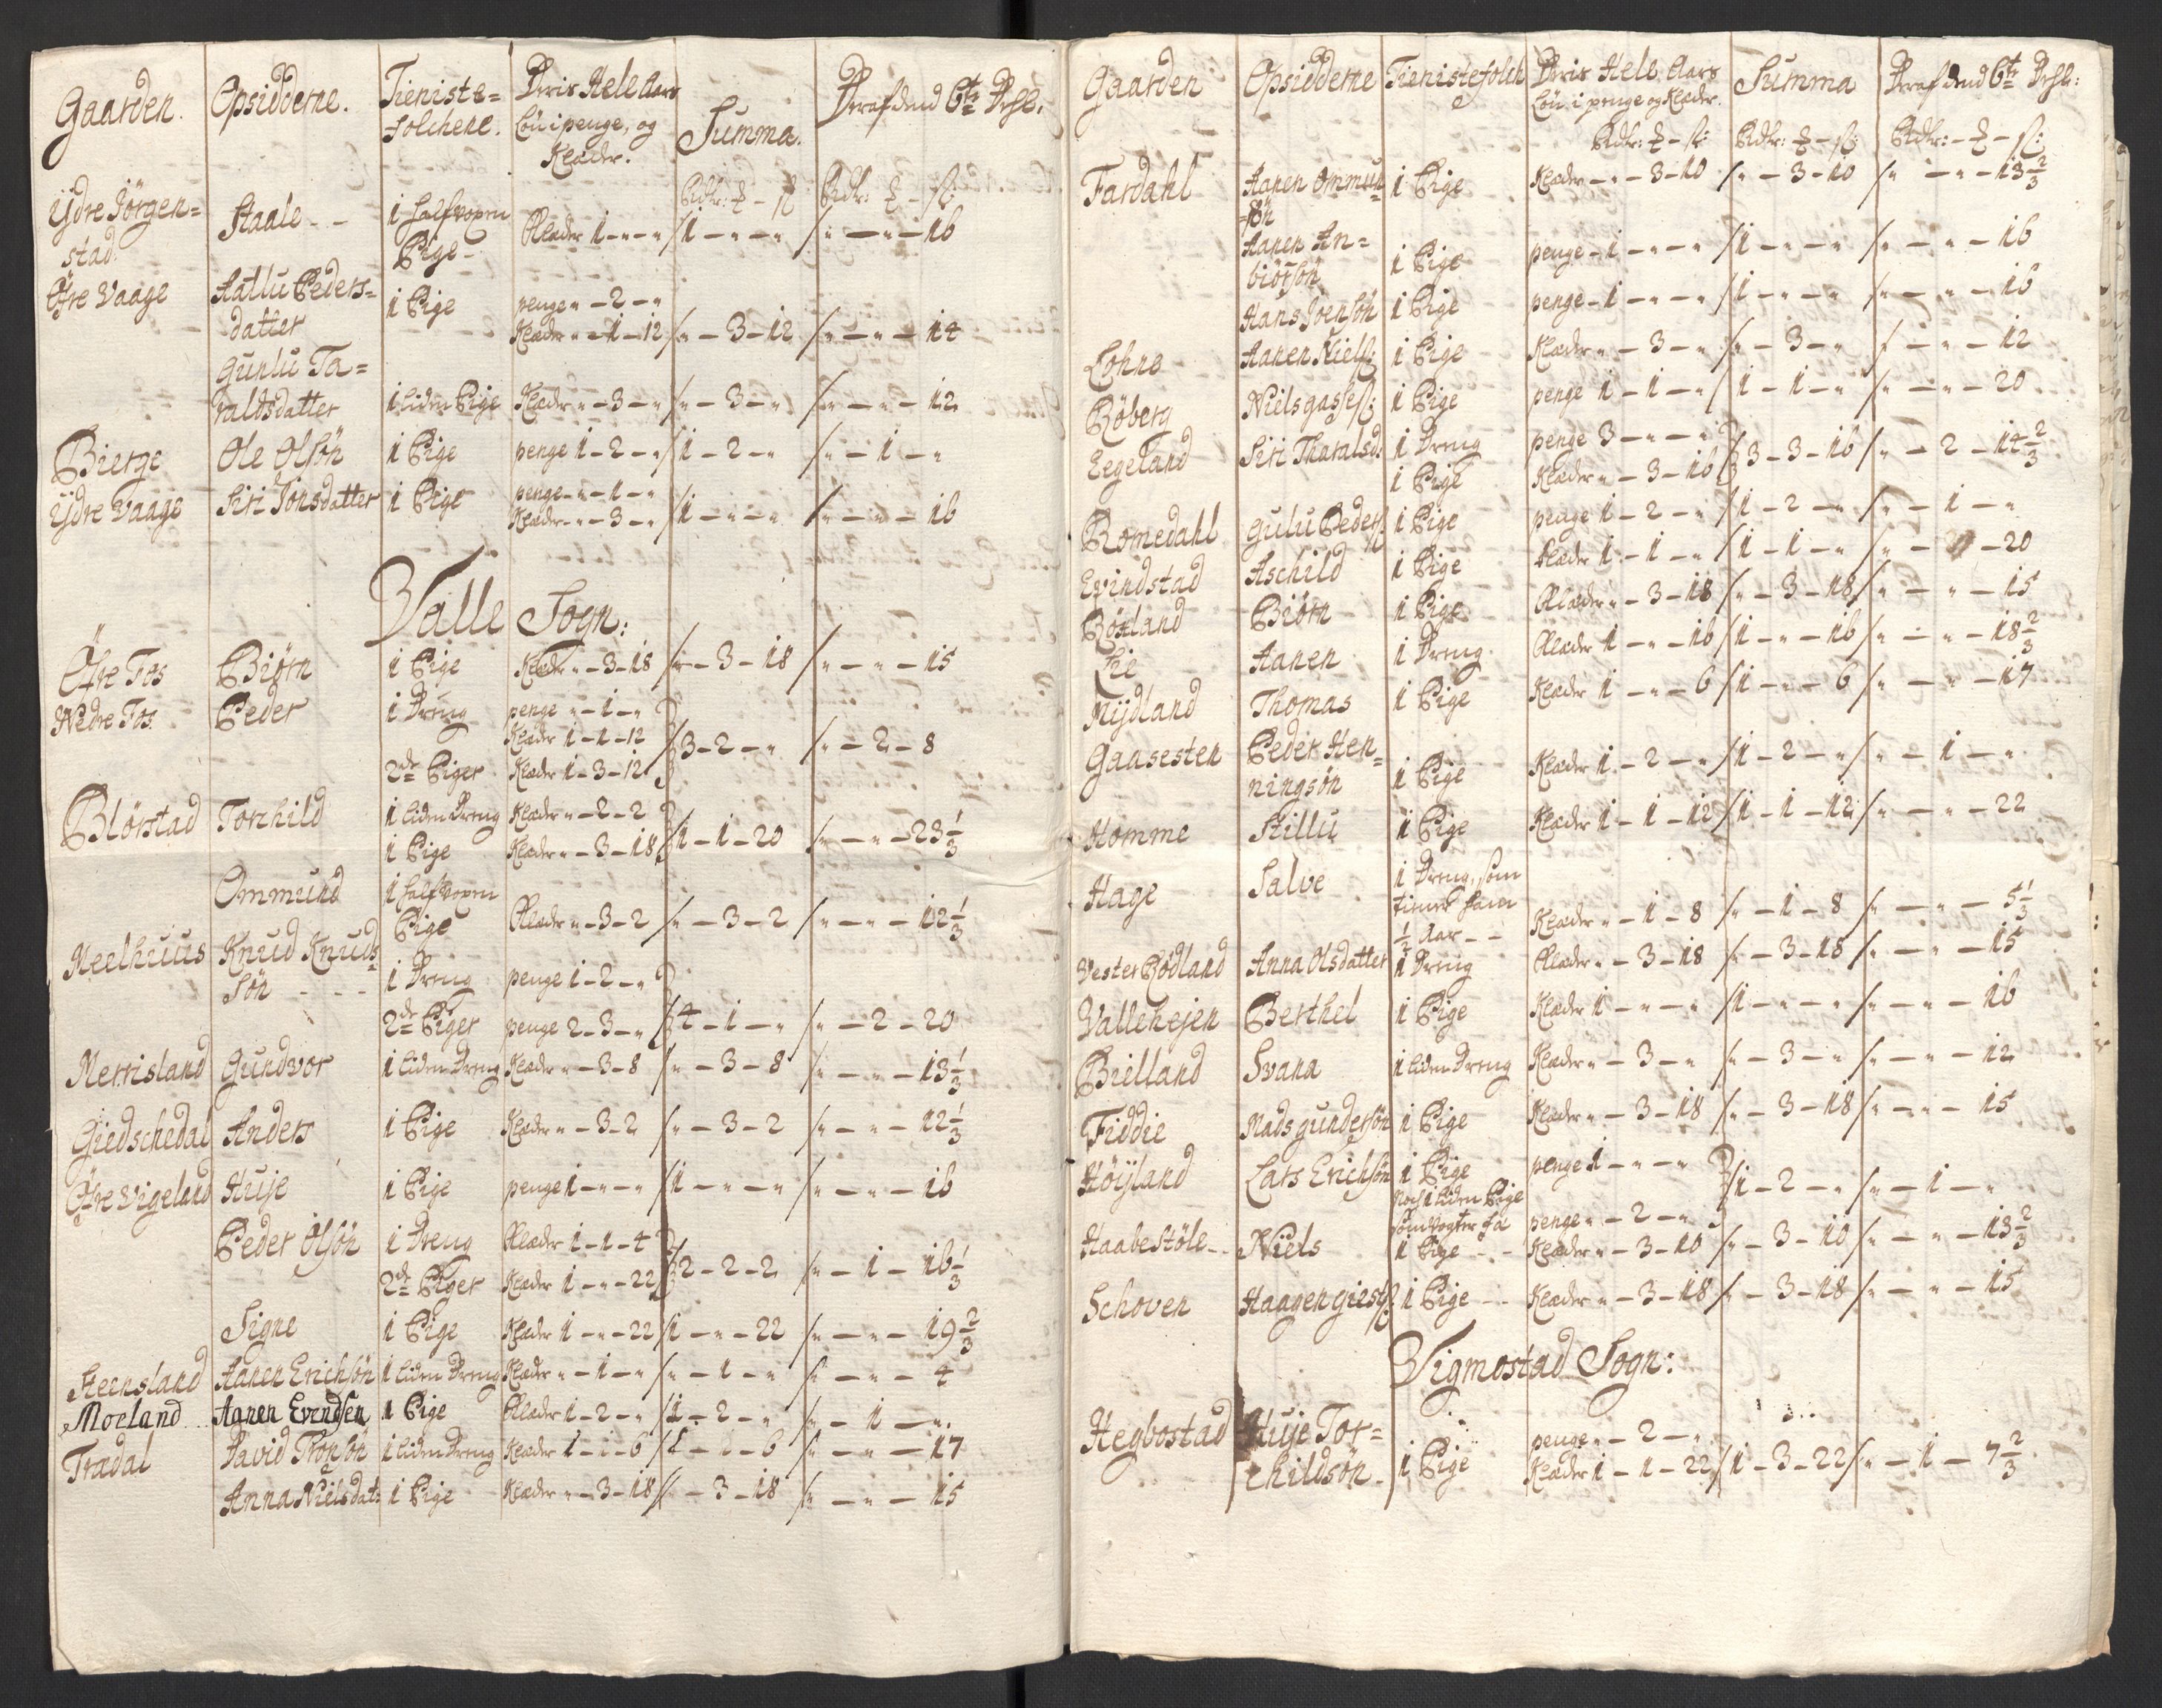 Gaarden. Opsidderne. Tieniste= Deris Hele Aars Summa. Deraf dend 6te Deel.
folchene. Løn i penge, og
Klæder.
Rdlr: - Rdlr: -
Ydre Jørgen= Staale - - 1 halfvoxen
stad. Pige - Klæder 1 - " - " 1 - " - " " - " - 16
Øfre Vaage Aallu Peders= 1 Pige penge " - 2 - "
datter Klæder " - 1 - 12 " - 3 - 12 " - " - 14
Gunlu Ta=
raldsdatter 1 liden Pige Klæder " - 3 - " " - 3 - " " - " - 12
Bierge Ole Olsøn 1 Pige penge 1 - 2 - " 1 - 2 - " " - 1 - "
Ydre Vaage Siri Jonsdatter 1 Pige penge - " - 1 - "
Klæder - " - 3 - " 1 - " - " " - " - 16
Valle Sogn:
Øfre Tos Biørn 1 Pige Klæder " - 3 - 18 " - 3 - 18 " - " - 15
Nedre Tos Peder 1 Dreng penge " - 1 - "
Klæder 1 - 1 - 12 3 - 2 - " " - 2 - 8
2de Piger Klæder 1 - 3 - 12
Blørstad Torchild 1 liden Dreng Klæder " - 2 - 2
1 Pige Klæder " - 3 - 18 1 - 1 - 20 " - " - 23 1/3
Ommund 1 halfvoxen
Pige Klæder " - 3 - 2 " - 3 - 2 " - " - 12 1/3
Meelhuus Knud Knuds=
Søn - - - 1 Dreng penge 1 - 2 - "
2de Piger penge 2 - 3 - " 4 - 1 - " " - 2 - 20
Merrisland Gundvor 1 liden Dreng Klæder " - 3 - 8 " - 3 - 8 " - " - 13 1/3
Giedschedal Anders 1 Pige Klæder " - 3 - 2 " - 3 - 2 " - " - 12 1/3
Øfre Vigeland Huje 1 Pige penge 1 - " - " 1 - " - " " - " - 16
Peder Olsøn 1 Dreng Klæder 1 - 1 - 4
2de Piger Klæder 1 - " - 22 2 - 2 - 2 " - 1 - 16 1/3
Signe 1 Pige Klæder 1 - " - 22 1 - " - 22 " - " - 19 2/3
Steensland Aanen Erichsøn 1 liden Dreng Klæder " - 1 - " " - 1 - " " - " - 4
Moeland Aanen Evendsen 1 Pige Klæder 1 - 2 - " 1 - 2 - " " - 1 - "
Tradal David Tronsøn 1 liden Dreng Klæder 1 - " - 6 1 - " - 6 " - " - 17
Anna Nielsdat: 1 Pige Klæder " - 3 - 18 " - 3 - 18 " - " - 15
Gaarden Opsidderne Tienistefolch Deris Hele Aars Summa Deraf dend 6te Deel:
Løn i penge og Klæder.
Rdlr: - Rdlr: - Rdlr: -
Fardahl Aanen Ommun= 1 Pige Klæder - " - 3 - 10 " - 3 - 10 " - " - 13 2/3
søn
Aanen An=
biørsøn 1 Pige penge - 1 - " - " 1 - " - " " - " - 16
Hans Joensøn 1 Pige penge - 1 - " - " 1 - " - " " - " - 16
Lohne Aanen Niels: 1 Pige Klæder " - 3 - " " - 3 - " " - " - 12
Røberg Niels gasses: 1 Pige penge 1 - 1 - " 1 - 1 - " " - " - 20
Eegeland Siri Tharalsd: 1 Dreng penge 3 - " - "
1 Pige Klæder " - 3 - 16 3 - 3 - 16 " - 2 - 14 2/3
Romedahl Gulu Peders: 1 Pige penge 1 - 2 - " 1 - 2 - " " - 1 - "
Evindstad Aschild 1 Pige Klæder 1 - 1 - " 1 - 1 - " " - - 20
Røsland Biørn 1 Pige Klæder " - 3 - 18 " - 3 - 18 " - " - 15
Lie Aanen 1 Dreng Klæder 1 - " - 16 1 - " - 16 " - " - 18 2/3
Mijdland Thomas 1 Pige Klæder 1 - " - 6 1 - " - 6 " - " - 17
Gaasesten Peder Hen=
ningsøn 1 Pige Klæder 1 - 2 - " 1 - 2 - " " - 1 - "
Homme Stillu 1 Pige Klæder 1 - 1 - 12 1 - 1 - 12 " - " - 22
Hage Salve 1 Dreng, som
tiener ham
1/2 Aar - - Klæder " - 1 - 8 " - 1 - 8 " - " - 5 1/3
Vester Rødland Anna Olsdatter 1 Dreng Klæder " - 3 - 18 " - 3 - 18 " - " - 15
Vallehejen Berthel 1 Pige Klæder 1 - " - " 1 - " - " " - " - 16
Bielland Svana 1 liden Dreng Klæder " - 3 - " " - 3 - " " - " - 12
Fiddie Mads gundersøn 1 Pige Klæder " - 3 - 18 " - 3 - 18 " - " - 15
Høijland Lars Erichsøn 1 Pige penge 1 - " - "
Noch 1 liden Pige 1 - 2 - " " - 1 - "
som vogter fæ penge " - 2 - "
Haabestøle - - Niels 1 Pige - - Klæder " - 3 - 10 " - 3 - 10 " - " - 13 2/3
Schoven Haagen giests: 1 Pige - - Klæder " - 3 - 18 " - 3 - 18 " - " - 15
Vigmostad Sogn:
Hegbostad Huje Tor= penge " - 2 - "
childsøn - 1 Pige Klæder 1 - 1 - 22 1 - 3 - 22 " - 1 - 7 2/3